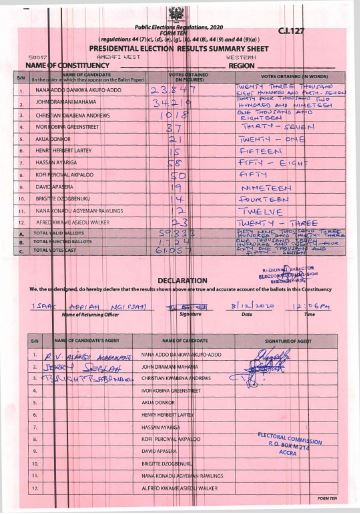 Public Elections Regulations, 2020
FORM TEN
C.I.127
(regulations 44 (7)(c), (d), (e), (g), (h), 44 (8), 44 (9) and 44 (9)(a))
PRESIDENTIAL ELECTION RESULTS SUMMARY SHEET
WESTERN
NAME OF CONSTITUENCY REGION
S/N NAME OF CANDIDATE VOTES OBTAINED (IN FIGURES) VOTES OBTAINED (IN WORDS)
(In the order in which they appear on the Ballot Paper)
1. NANA ADDO DANKWA AKUFO-ADDO 23,847 TWENTY THREE THOUSAND
EIGHT HUNDRED AND FORTY
2. JOHN DRAMANI MAHAMA 34219 THIRTY FOUR THOUSAND TWO
HUNDRED AND NINETEEN
3. CHRISTIAN KWABENA ANDREWS 1018 ONE THOUSAND AND
EIGHTEEN
4. IVOR KOBINA GREENSTREET 37 THIRTY - SEVEN
5. AKUA DONKOR 21 TWENTY - ONE
6. HENRY HERBERT LARTEY 15 FIFTEEN
7. HASSAN AYARIGA 58 FIFTY - EIGHT
8. KOFI PERCIVAL AKPALOO 50 FIFTY
9. DAVID APASERA 19 NINETEEN
10. BRIGITTE DZOGBENUKU 14 FOURTEEN
11. NANA KONADU AGYEMAN RAWLINGS 12 TWELVE
12. ALFRED KWAME ASIEDU WALKER 23 TWENTY - THREE
A. TOTAL VALID BALLOTS
B. TOTAL REJECTED BALLOTS
C. TOTAL VOTES CAST
DECLARATION
We, the undersigned, do hereby declare that the results shown above are true and accurate account of the ballots in this Constituency
ISAAC 8/12/2020 12:06PM
Name of Returning Officer Signature Date Time
S/N NAME OF CANDIDATE'S AGENT NAME OF CANDIDATE SIGNATURE OF AGENT
1. NANA ADDO DANKWA AKUFO-ADDO
2. JOHN DRAMANI MAHAMA
3. CHRISTIAN KWABENA ANDREWS
4. IVOR KOBINA GREENSTREET
5. AKUA DONKOR
6. HENRY HERBERT LARTEY
7. HASSAN AYARIGA
8. KOFI PERCIVAL AKPALOO
9. DAVID APASERA
10. BRIGITTE DZOGBENUKU
11. NANA KONADU AGYEMAN RAWLINGS
12. ALFRED KWAME ASIEDU WALKER
ELECTORAL COMMISSION
P. O. BOX M 214
ACCRA
FORM TEN